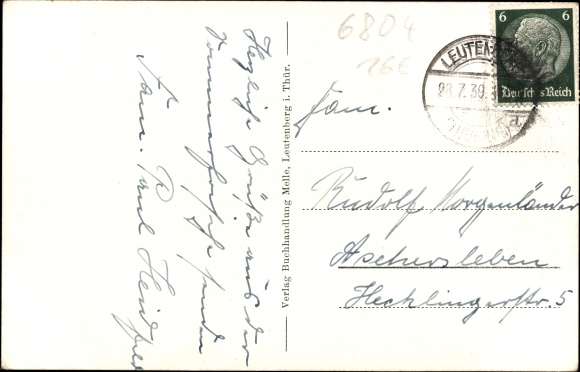 Herzliche Grüße aus der
Sommerfrische senden
Fam. Paul Heid
Verlag Buchhandlung Melle, Leutenberg i. Thür.
6804
16€
LEUTENBERG
28.7.39.
6 6
Deutsches Reich
Fam.
Rudolf Morgenländer
Aschersleben
Hecklingerstr. 5